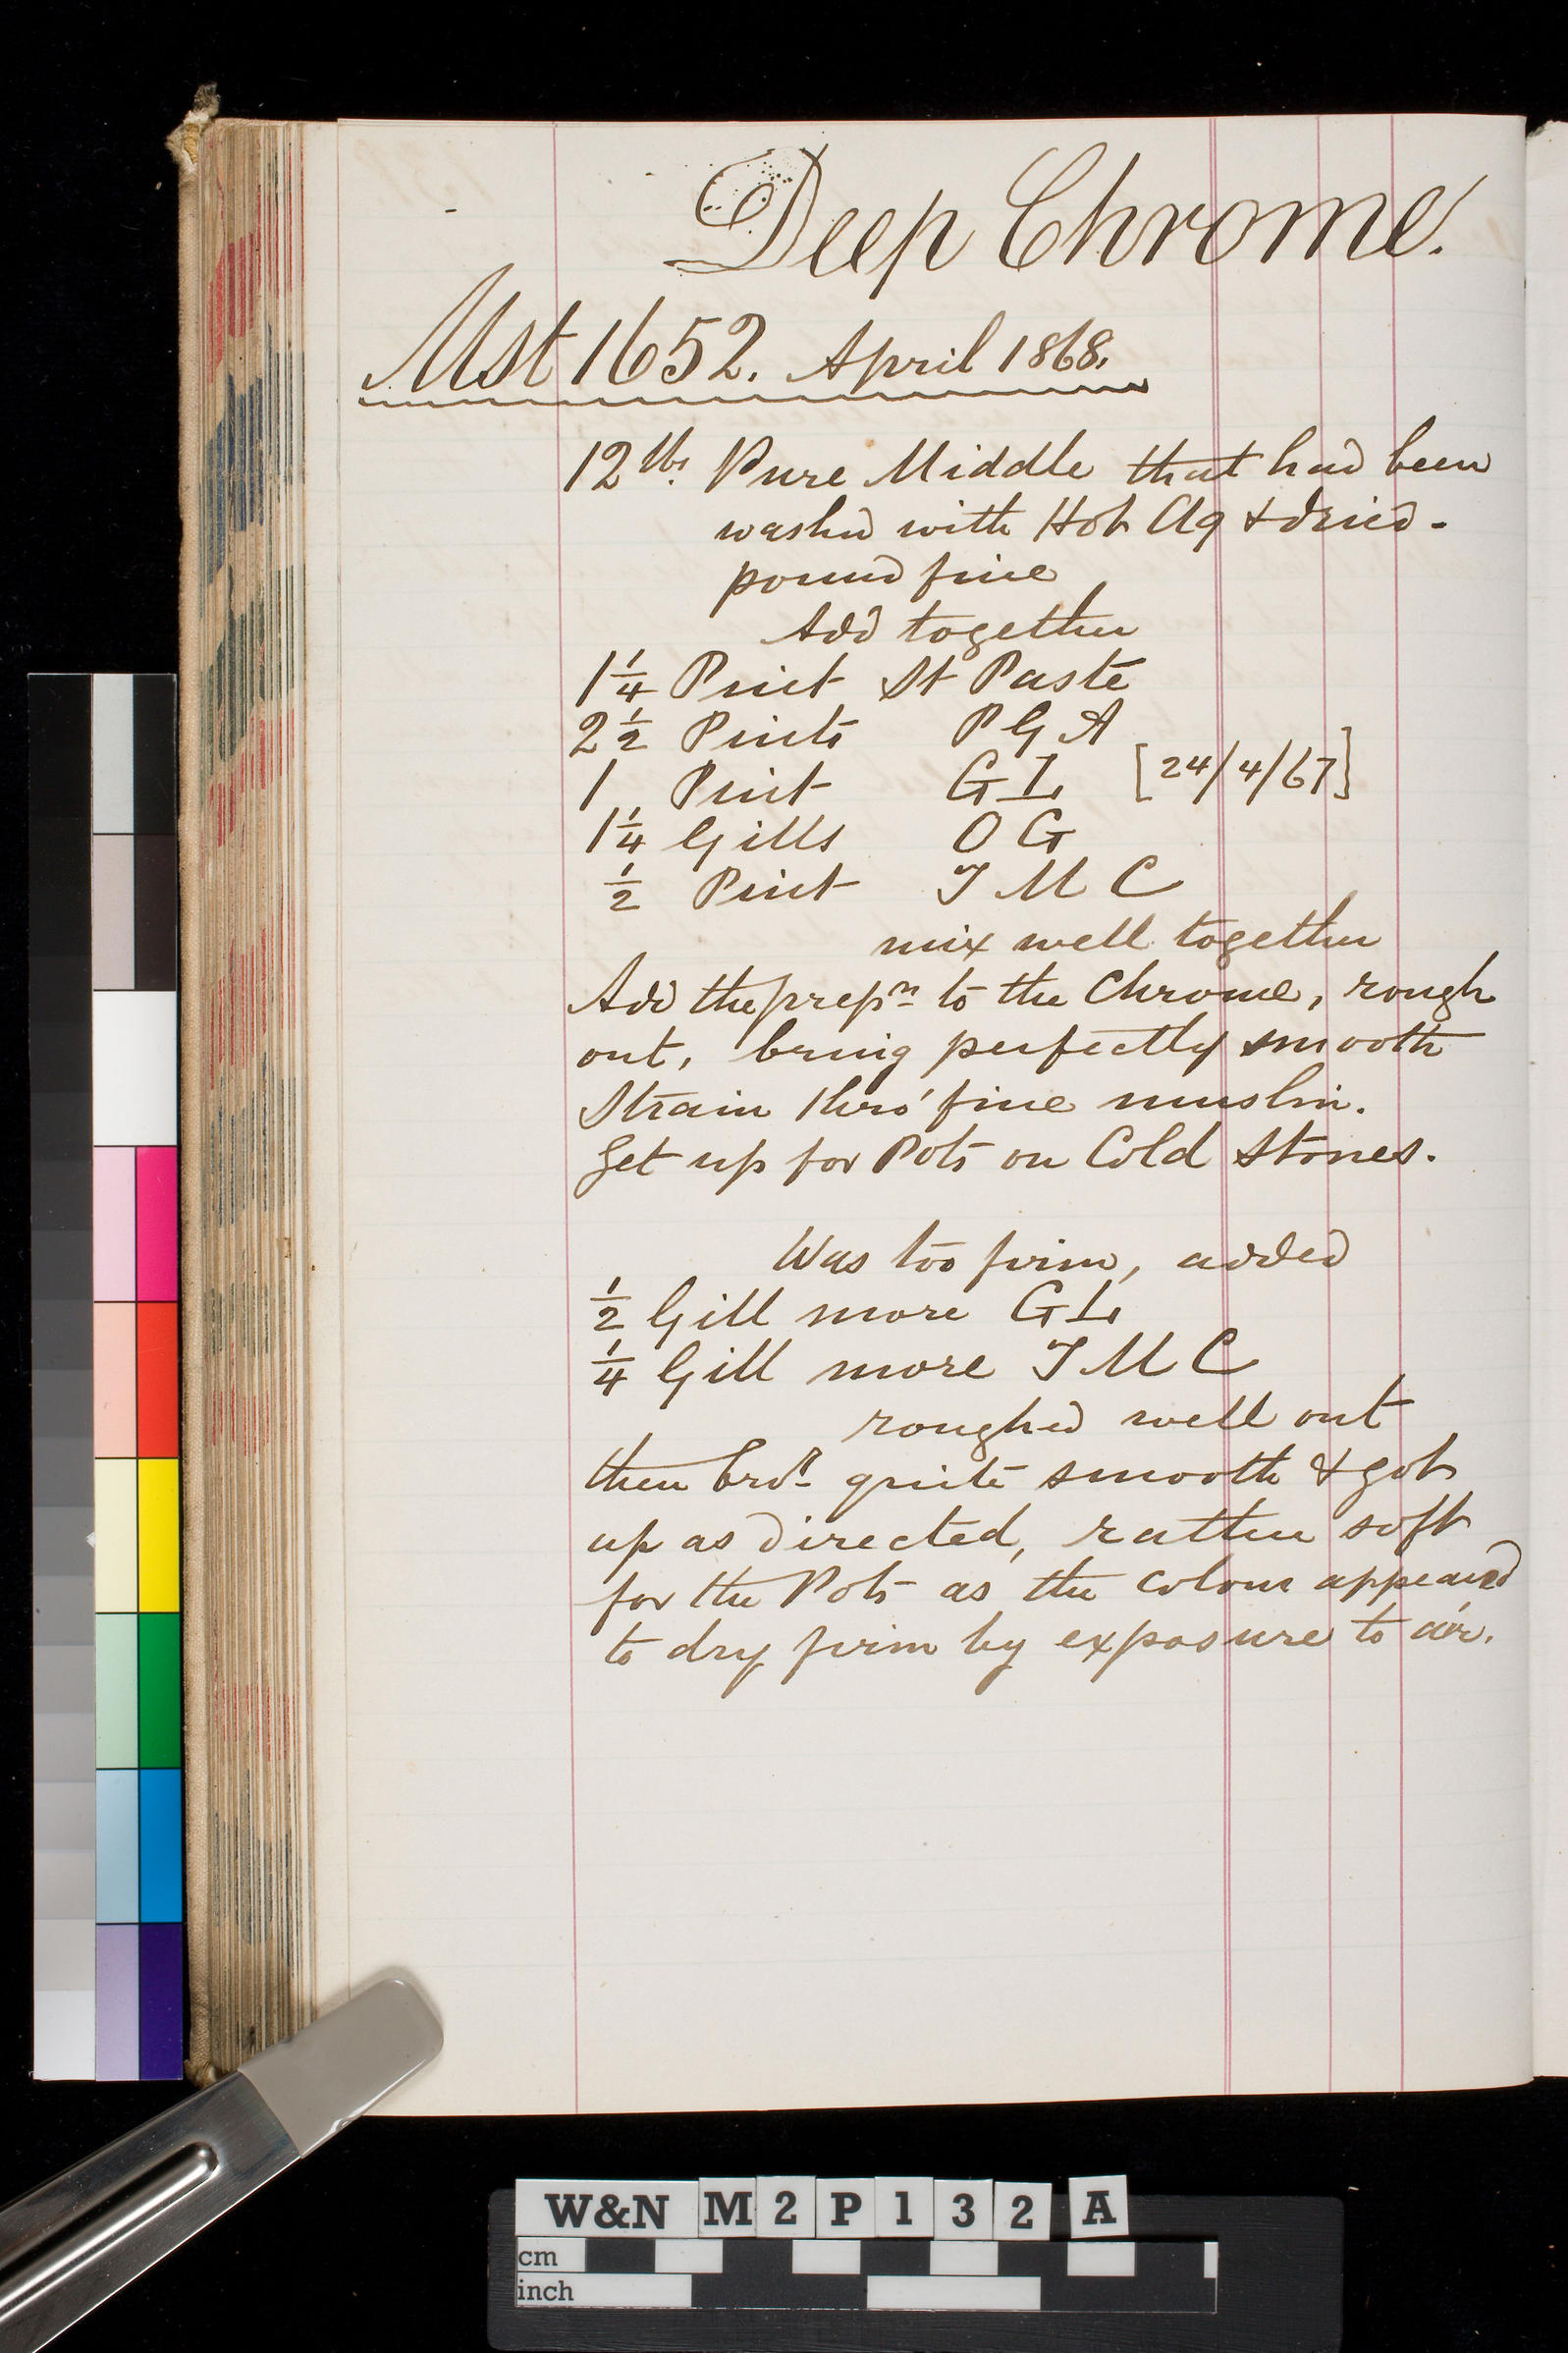 Deep Chrome.
Mst 1652. April 1868.
12 lbs. Pure Middle that had been
washed with Hot Aq & dried -
pound fine
Add together
1 1/4 Pint St Paste
2 1/2 Pints P G A
1 " Pint G L [24/4/67]
1 1/4 Gills O G
1/2 Pint T M C
mix well together
Add the prepn to the Chrome, rough
out, bring perfectly smooth
Strain thro' fine muslin.
Get up for Pots on Cold Stones.
Was too firm, added
1/2 Gill more G L
1/4 Gill more T M C
roughed well out
then brot quite smooth & got
up as directed, rather soft
for the Pots as the Colour appeared
to dry firm by exposure to air.
W&N M2P132 A
cm
inch